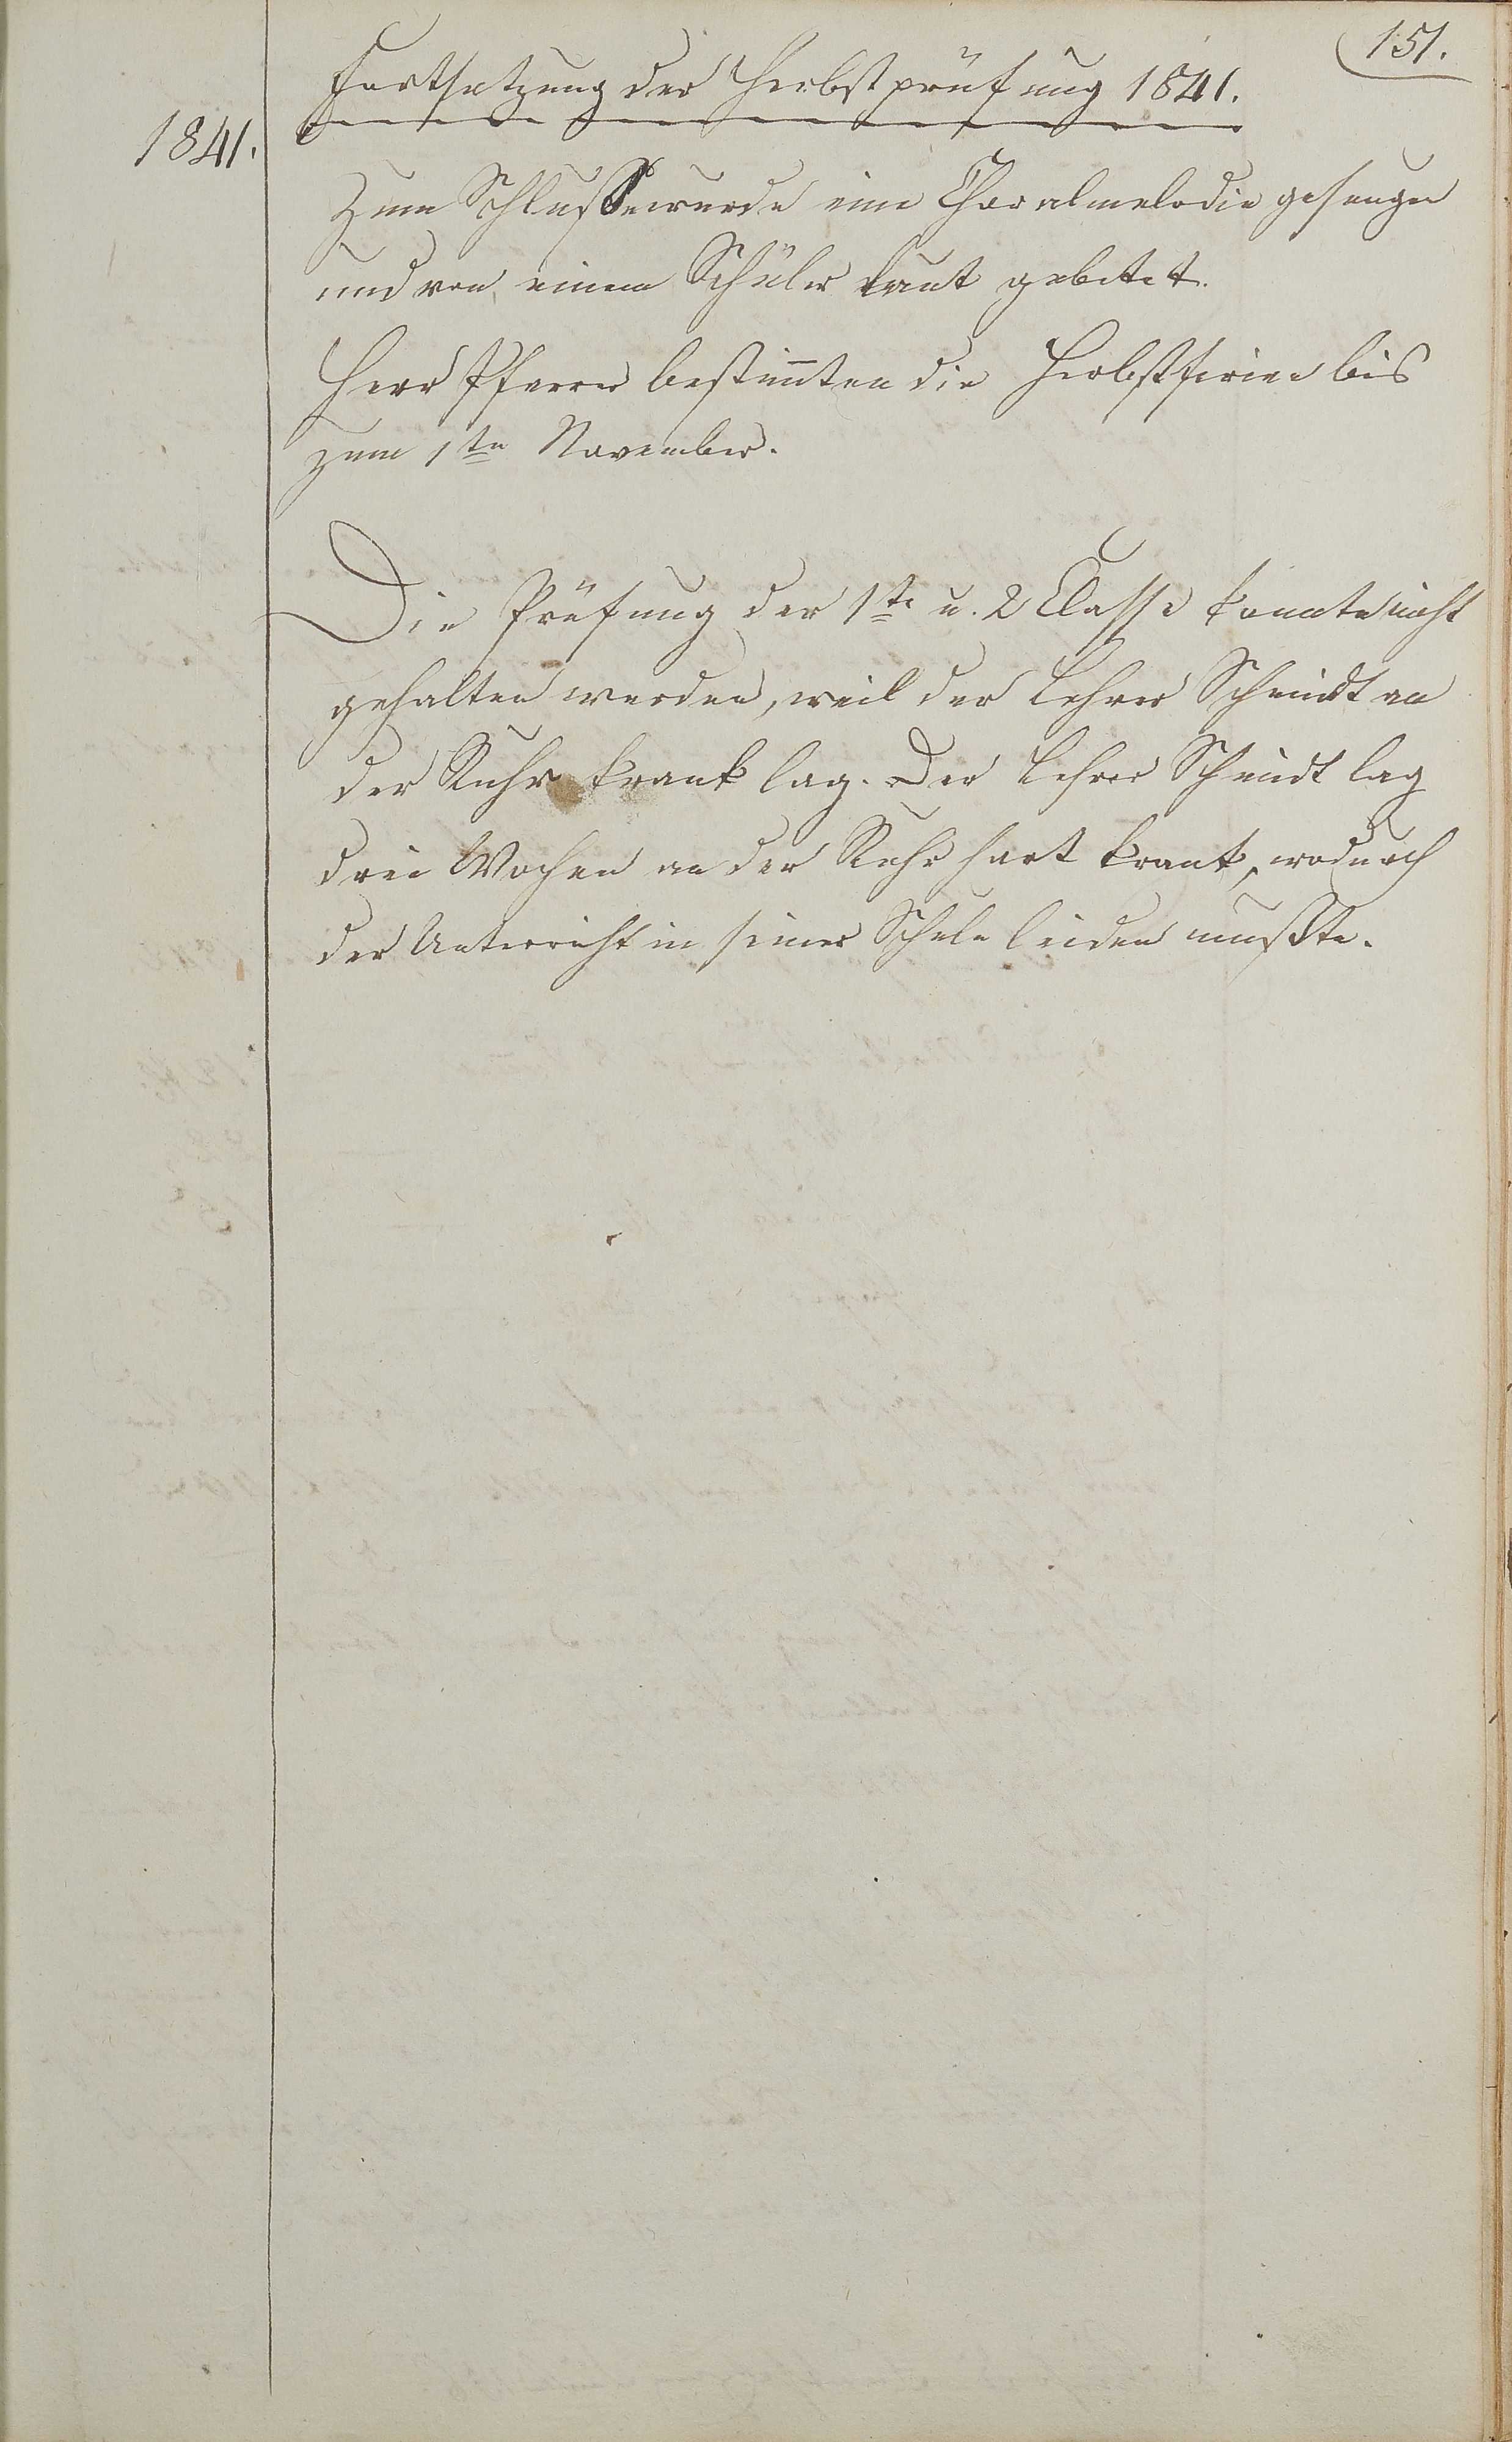 151.
Fortsetzung der Herbstprüfung 1841.
1841.
Zum Schlusse wurde eine Choralmelodie gesungen
und von einem Schüler laut gebetet.
Herr Pfarrer bestim̅ten die Herbstferien bis
zum 1ten November.
Die Prüfung der 1te u. 2 Classe konnte nicht
gehalten werden, weil der Lehrer Schmidt an
der Ruhr krank lag. Der Lehrer Schmidt lag
drei Wochen an der Ruhr hart krank, wodurch
der Unterricht in seiner Schule leiden mußte.